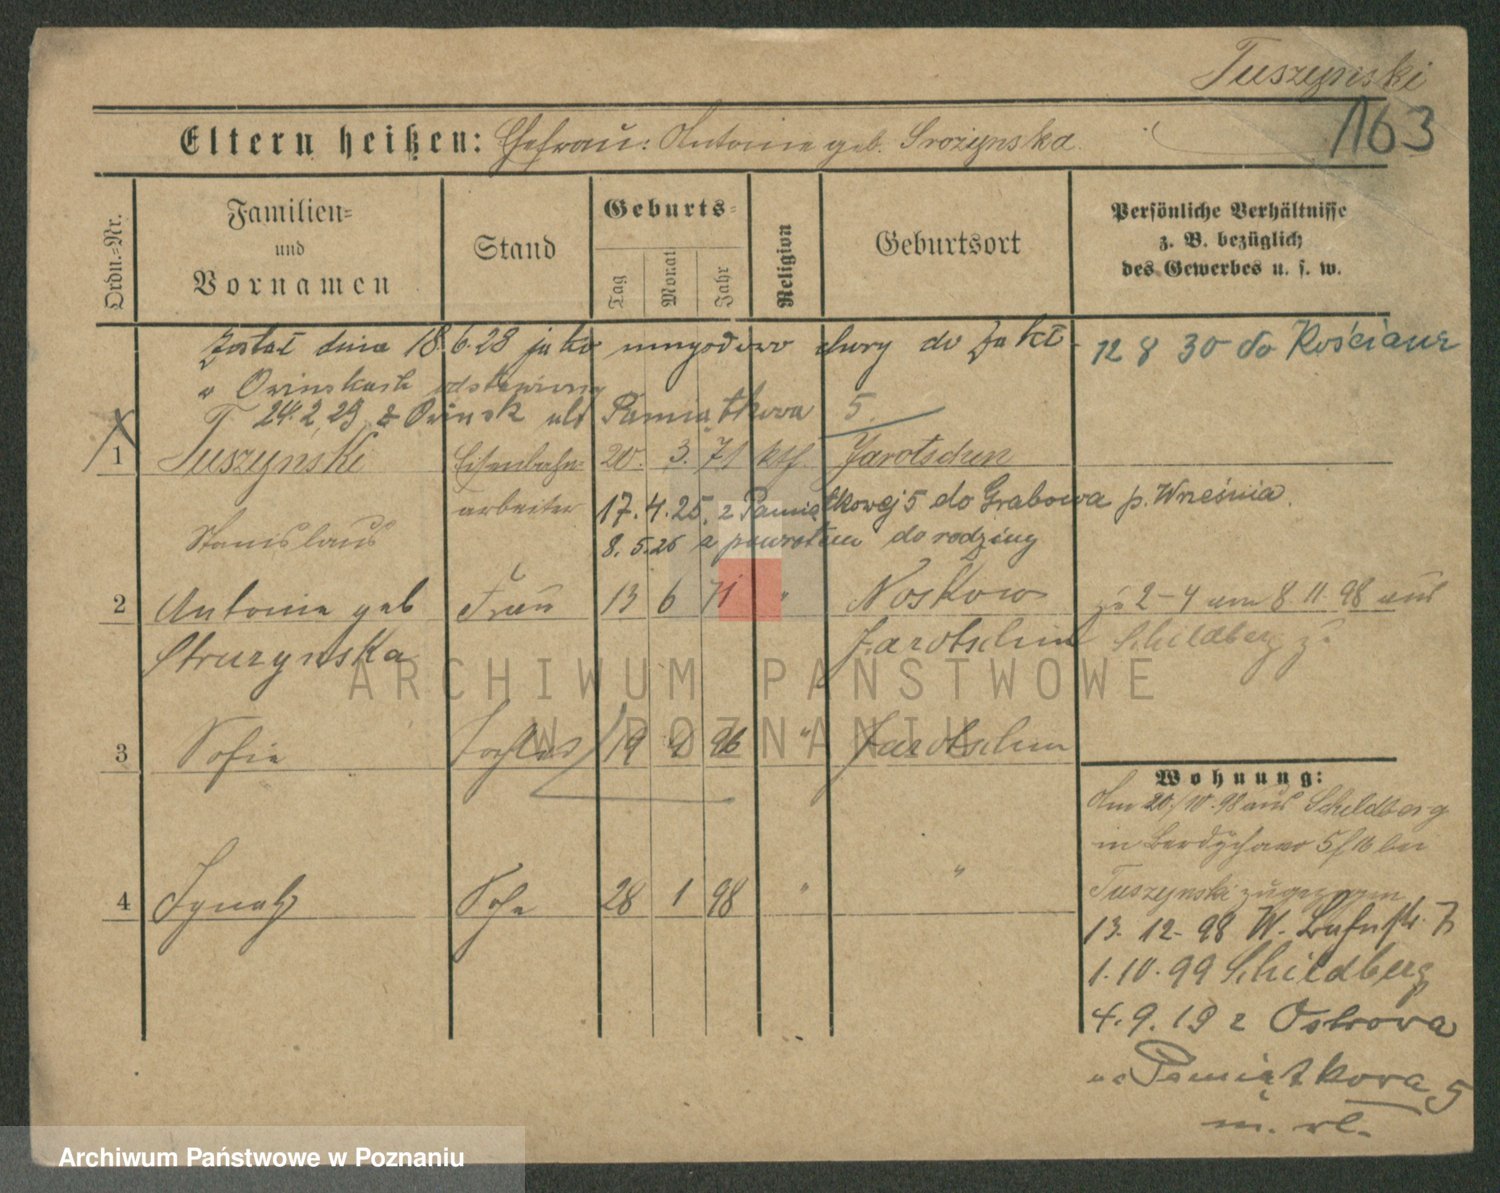 Tuszynski
163
Eltern heißen: Ehefrau: Antonie geb. Srozynska
Ordn.=Nr.
Familien=
und
Vornamen
Stand
Geburts=
Tag
Monat
Jahr
Religion
Geburtsort
Persönliche Verhältnisse
z. B. bezüglich
des Gewerbes u. s. w.
Został dnia 18.6.23 jako umysłowo chory do Zakł.
12 8 30 do Kościana
w Owinskach odstawiony
T. 24.2.29 z Owinsk ul. Pamiątkowa 5.
1 Tuszynski Eisenbahn- 20. 3. 71 kth. Jarotschen
arbeiter
17.4.25. z Pamiątkowej 5 do Grabowa p. Września.
Stanislaus
8. 5.25 z powrotem do rodziny
2 Antonie geb Frau 13 6 71 " Noskow
zu 2-4 am 8.11.98 aus
Struzynska Jarotschin
Schildberg z.
3 Sofie Tochter 19 4 96 " Jarotschin
4 Ignatz Sohn 28 1 98 " "
Wohnung:
Am 20/10.98 aus Schildberg
in Berdychowo 5/6 bei
Tuszynski zugezogen
13. 12. 98 W. 7
1.10.99 Schildberg
4.9.19 z Ostrowa
na Pamiątkowa 5
ARCHIWUM PAŃSTWOWE
W POZNANIU
Archiwum Państwowe w Poznaniu